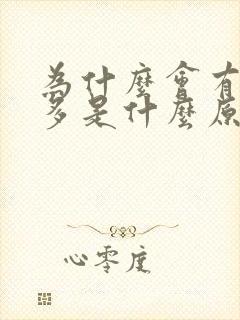 為什麼會有
多是什麼原
心零度